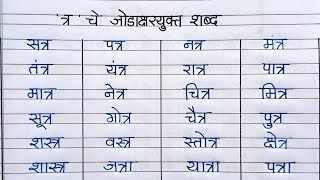 'त्र' चे जोडाक्षरयुक्त शब्द
सत्र पत्र नत्र मंत्र
तंत्र यंत्र रात्र पात्र
मात्र नेत्र चित्र मित्र
सूत्र गोत्र चैत्र पुत्र
शस्त्र वस्त्र स्तोत्र क्षेत्र
शास्त्र जत्रा यात्रा पत्रा